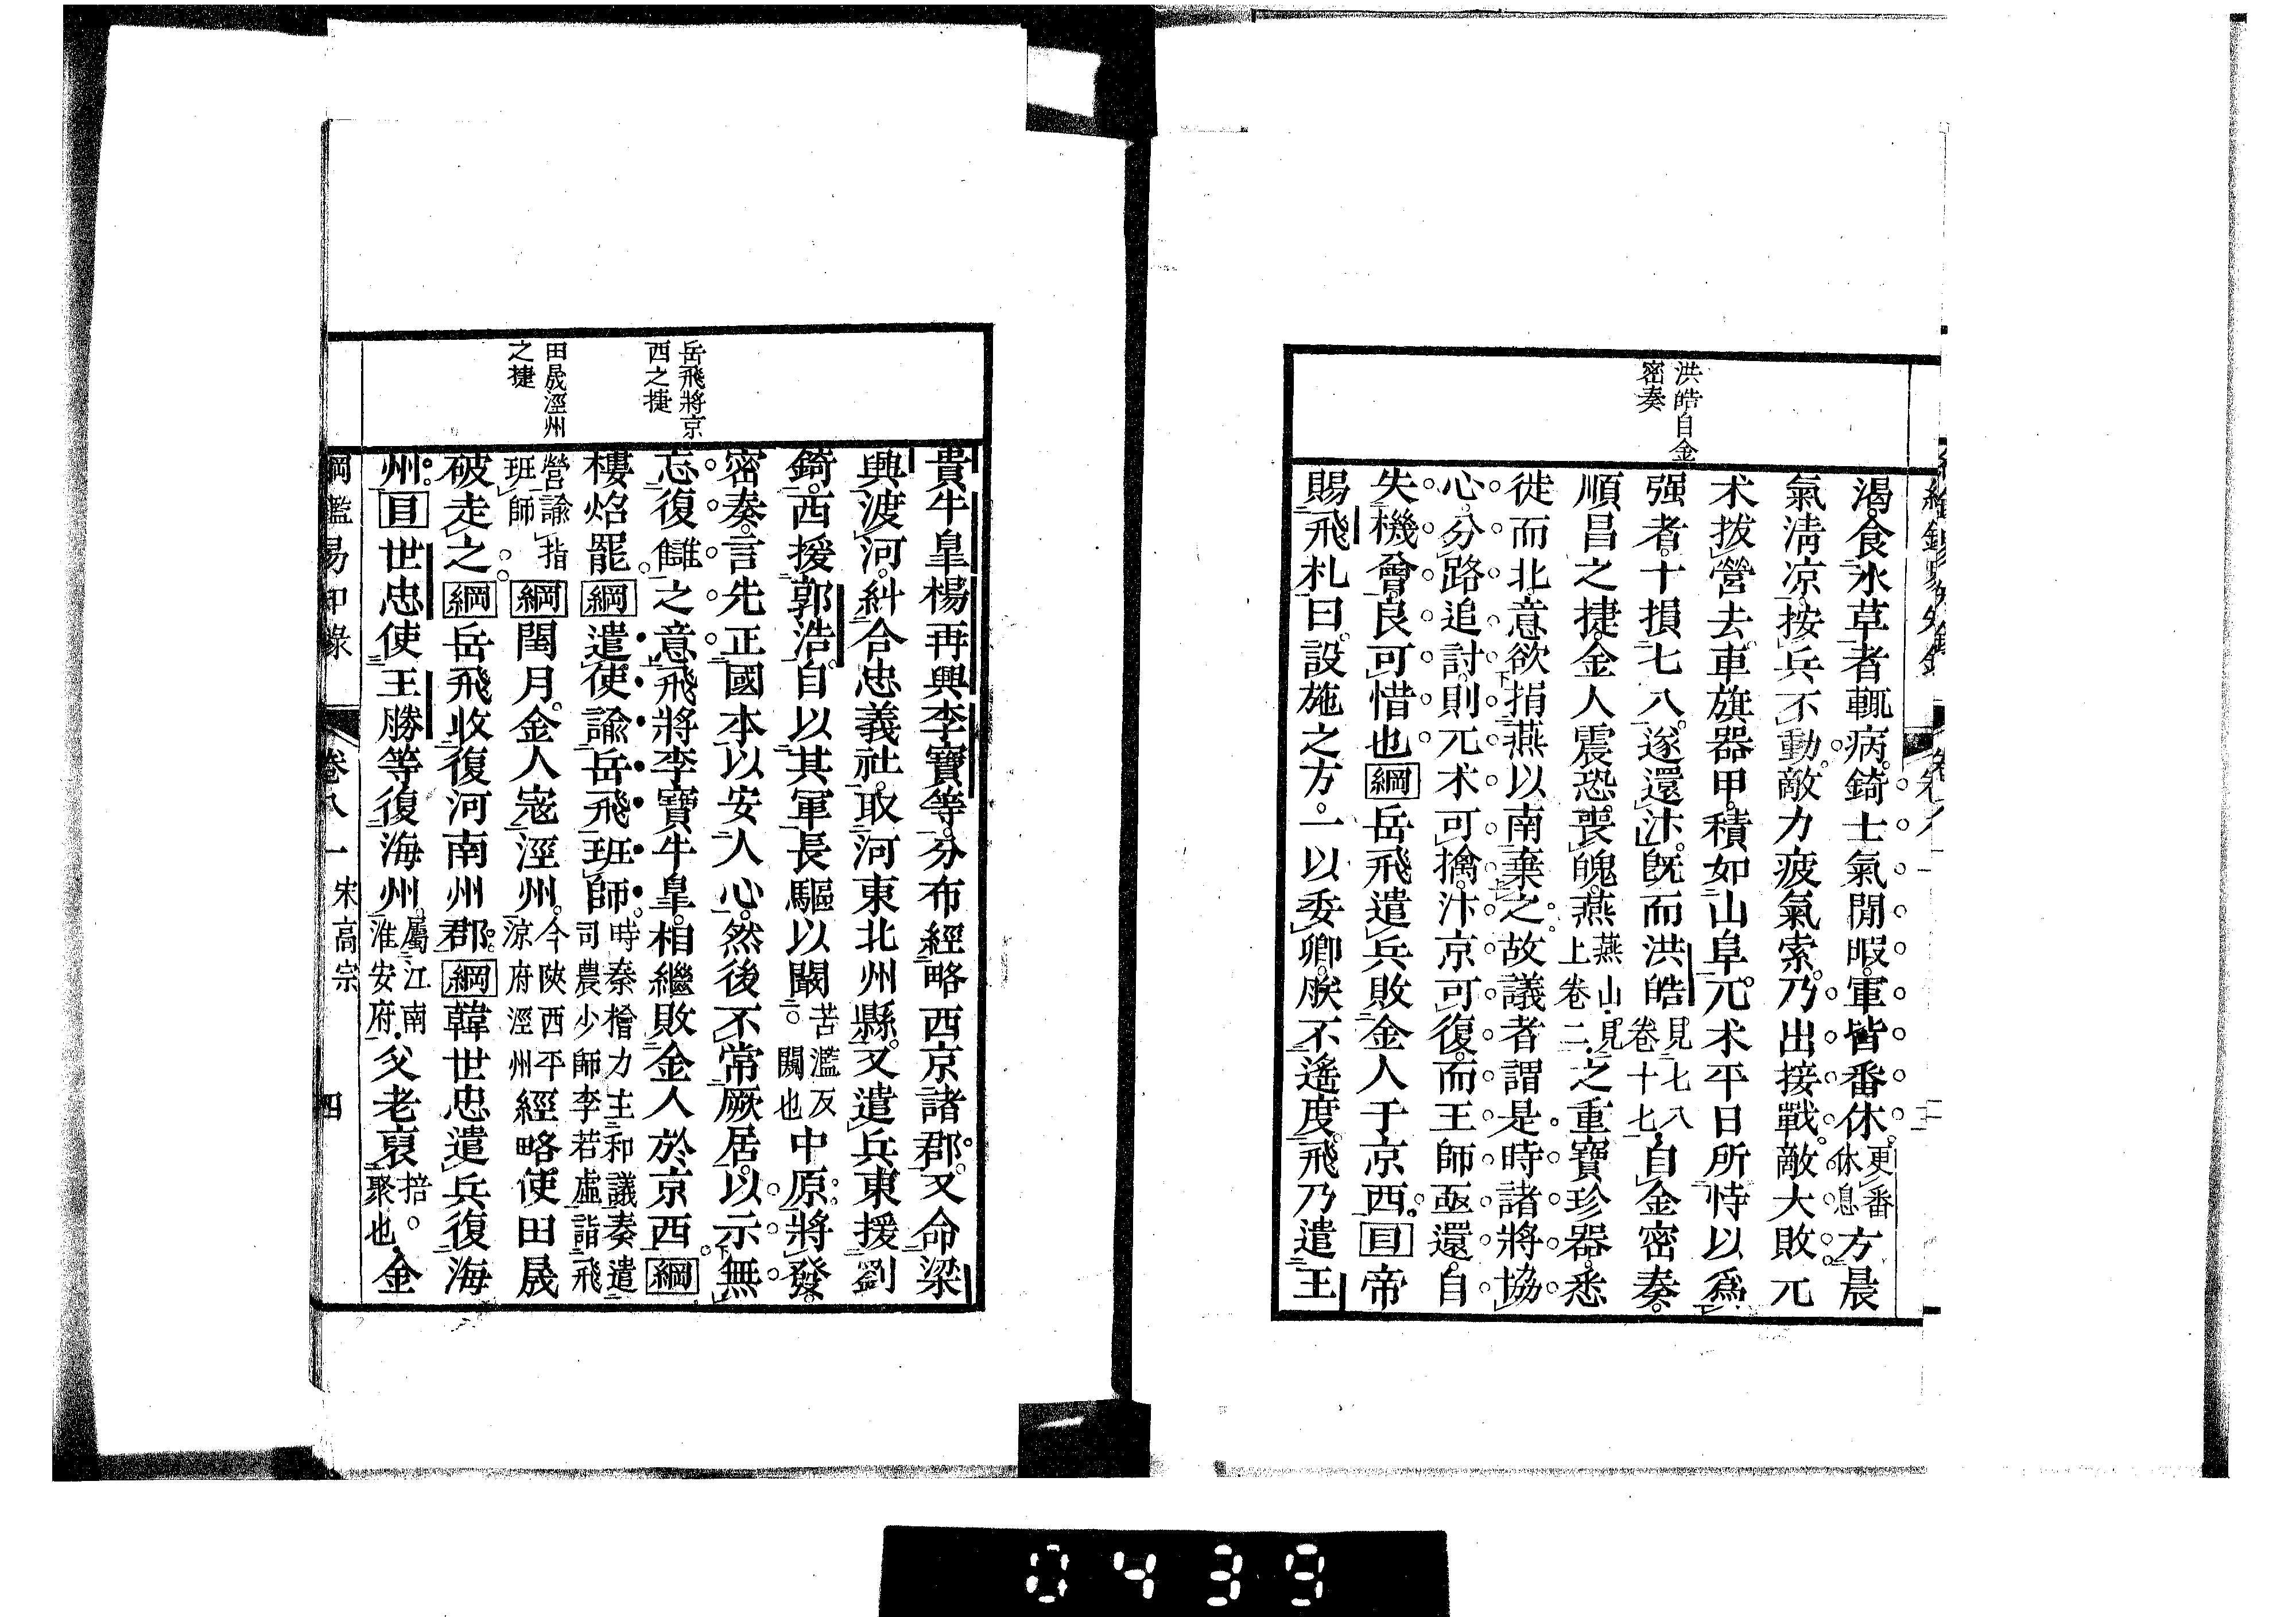 洪皓自金
密奏
渴食水草者輒病錡士氣閒暇軍皆番休更番休息方晨
氣淸凉按兵不動敵力疲氣索乃出接戰敵大敗兀
朮拔營去車旗器甲積如山阜兀朮平日所恃以爲
强者十損七八遂還汴旣而洪皓見七八卷十七自金密奏
順昌之捷金人震恐喪魄燕燕山見上卷二之重寶珍器悉
徙而北意欲捐燕以南棄之故議者謂是時諸將協
心分路追討則兀朮可擒汴京可復而王師亟還自
失機會良可惜也綱岳飛遣兵敗金人于京西目帝
賜飛札曰設施之方一以委卿朕不遙度飛乃遣王
岳飛將京
西之捷
田晟涇州
之捷
貴牛皐楊再興李寶等分布經略西京諸郡又命梁
興渡河糾合忠義社取河東北州縣又遣兵東援劉
錡西援郭浩自以其軍長驅以闞苦濫反闞也中原將發
密奏言先正國本以安人心然後不常厥居以示無
忘復讎之意飛將李寶牛皐相繼敗金人於京西綱
樓炤罷綱遣使諭岳飛班師時秦檜力主和議奏遣司農少師李若虛詣飛
營諭指班師綱閏月金人寇涇州今陝西平涼府涇州經略使田晟
破走之綱岳飛收復河南州郡綱韓世忠遣兵復海
州目世忠使王勝等復海州屬江南淮安府父老裒掊聚也金
綱鑑易知錄 卷八一 宋高宗 四
0439